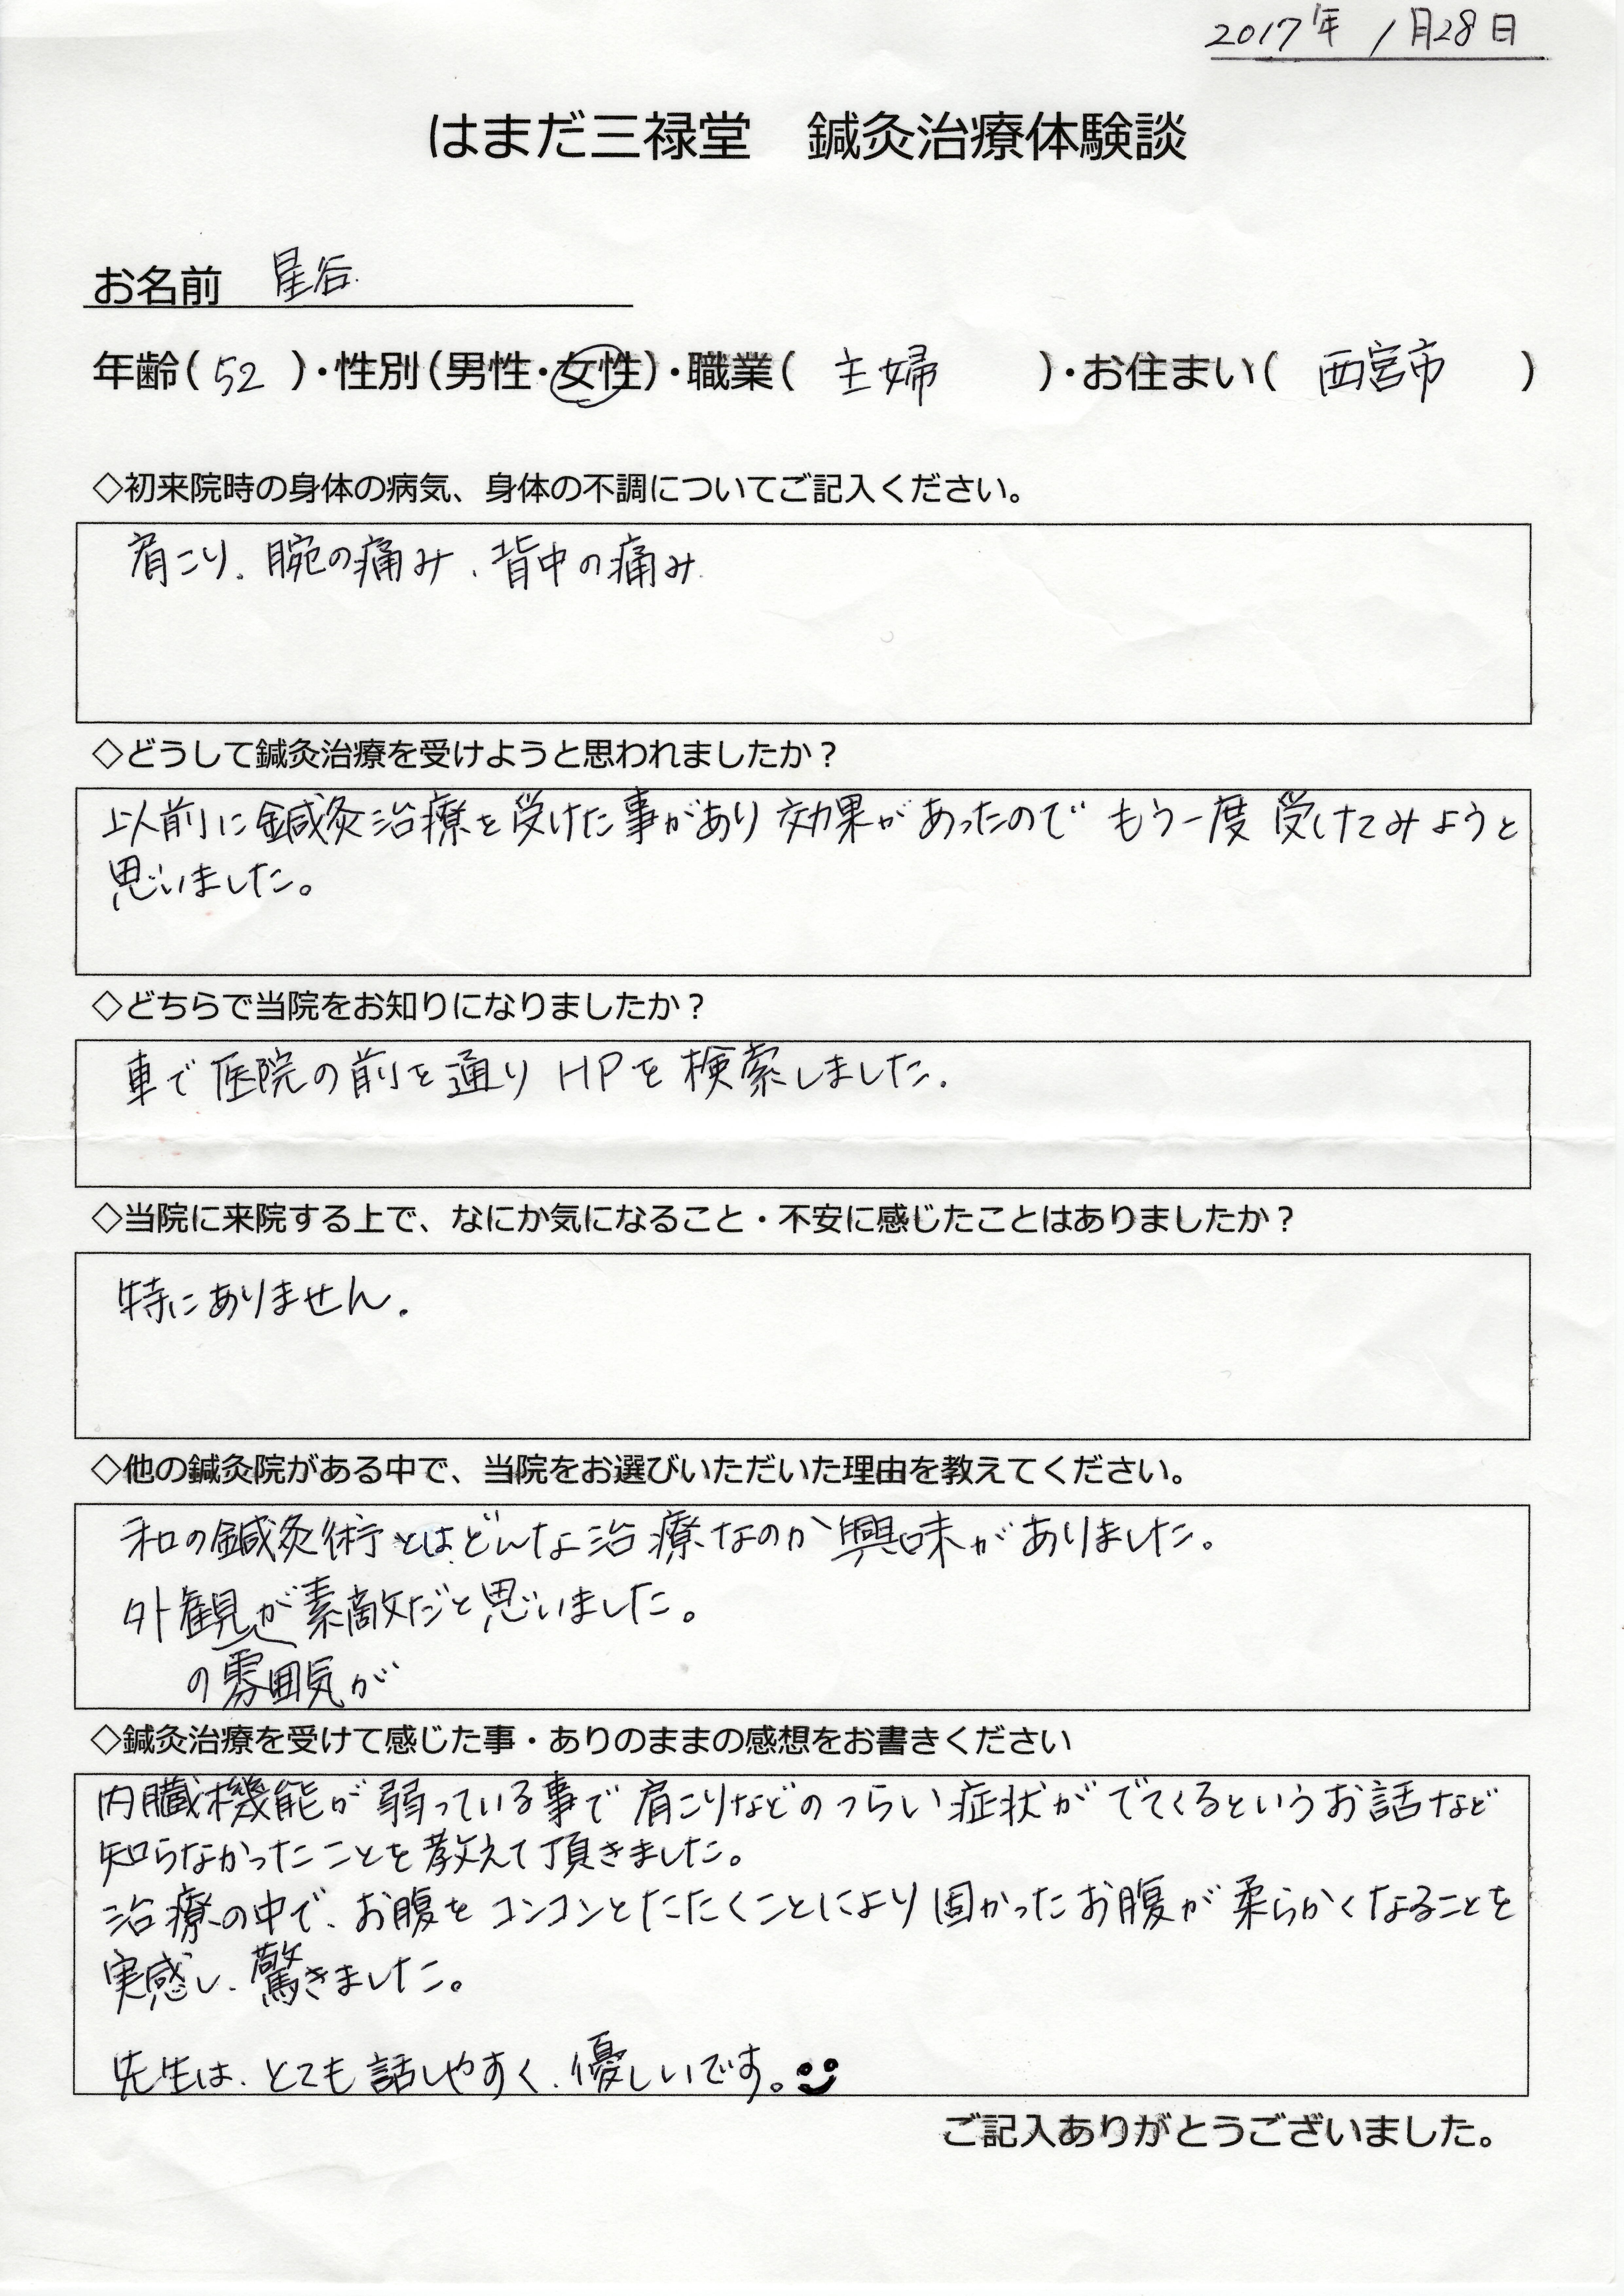 2017年 1月28日
はまだ三禄堂　鍼灸治療体験談
お名前　星谷
年齢(52)・性別(男性・女性)・職業(主婦)・お住まい(西宮市)
◇初来院時の身体の病気、身体の不調についてご記入ください。
肩こり、腕の痛み、背中の痛み
◇どうして鍼灸治療を受けようと思われましたか？
以前に鍼灸治療を受けた事があり効果があったのでもう一度受けてみようと
思いました。
◇どちらで当院をお知りになりましたか？
車で医院の前を通りHPを検索しました.
◇当院に来院する上で、なにか気になること・不安に感じたことはありましたか？
特にありません.
◇他の鍼灸院がある中で、当院をお選びいただいた理由を教えてください。
和の鍼灸術とはどんな治療なのか興味がありました。
外観が素敵だと思いました。
の雰囲気が
◇鍼灸治療を受けて感じた事・ありのままの感想をお書きください
内臓機能が弱っている事で肩こりなどのつらい症状がでてくるというお話など
知らなかったことを教えて頂きました。
治療の中で、お腹をコンコンとたたくことにより固かったお腹が柔らかくなることを
実感し、驚きました。
先生は、とても話しやすく、優しいです。
ご記入ありがとうございました。